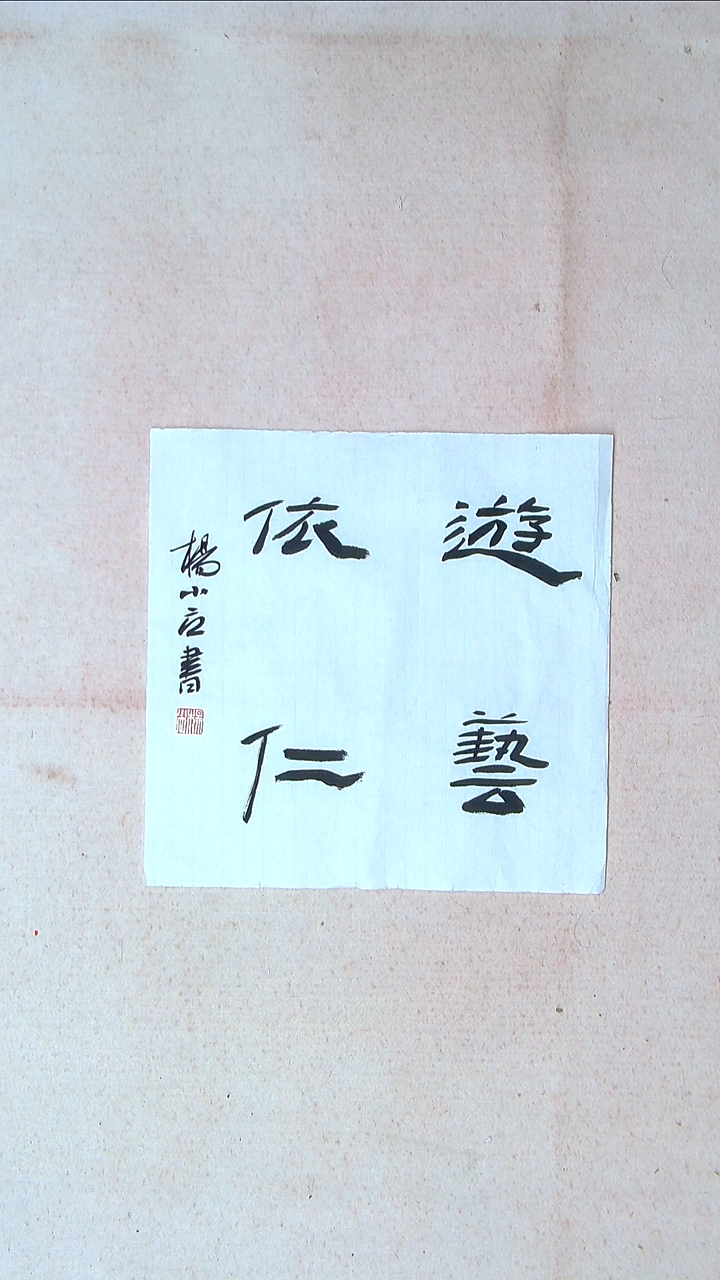 遊藝
依仁
楊小立書